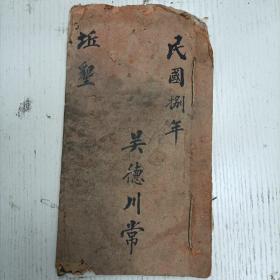 民國捌年
吴德川常
坵聖